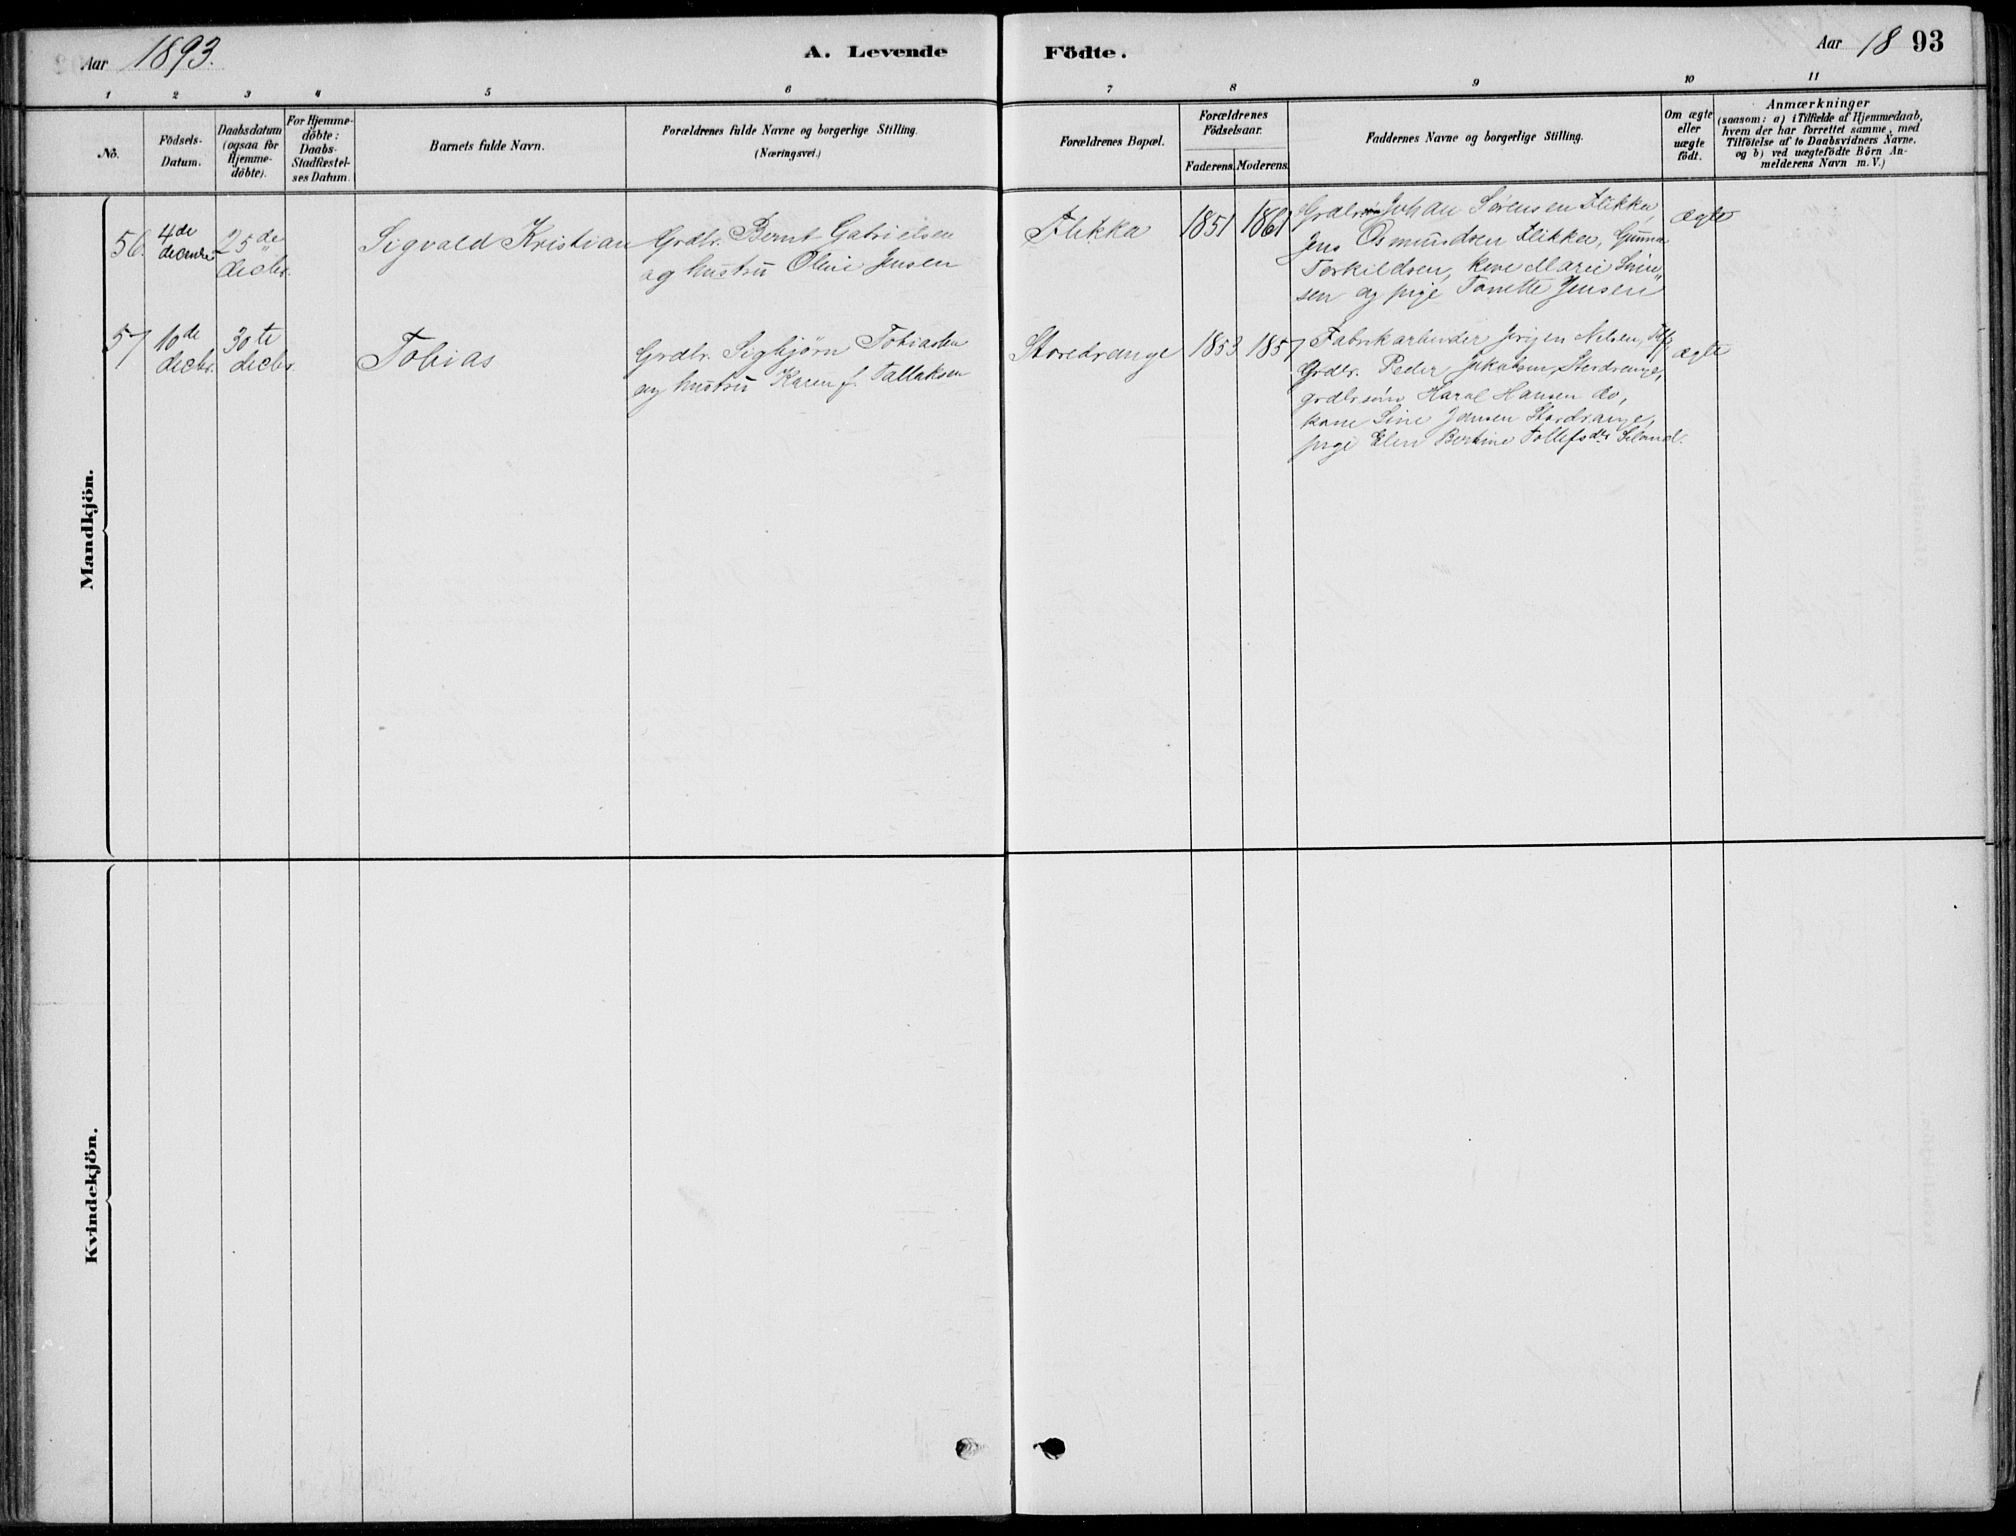 Aar 1893.
A. Levende Födte.
Aar 18 93
1 2 3 4 5 6 7 8 9 10 11
No.
Födsels-Datum.
Daabsdatum (ogsaa for Hjemme-döbte).
For Hjemme-döbte: Daabs-Stadfæstel-ses Datum.
Barnets fulde Navn.
Forældrenes fulde Navne og borgerlige Stilling.
(Næringsvei.)
Forældrenes Bopæl.
Forældrenes Födselsaar.
Faderens. Moderens.
Faddernes Navne og borgerlige Stilling.
Om ægte eller uægte födt.
Anmærkninger
(saasom: a) i Tilfælde af Hjemmedaab,
hvem der har forrettet samme, med
Tilföielse af to Daabsvidners Navne.
og b) ved uægtefödte Börn An-
melderens Navn m. V.)
Mandkjön.
56. 4de 25de decbr. Sigvald Kristian
Grdbr. Bernt Gabrielsen
og hustru Oline Jensen
Flikka 1851 1861
Johan Sörensen Flikka,
Jens Osmundsen Flikka, Gunna
Torkildsen, kone Marie Sören
sen og pige Tonette Jensen
ægte
57 10de decbr. 30te decbr. Tobias
Grdbr. Sigbjörn Tobiassen
og hustru Karen f. Tallaksen
Storedrange 1853 1857
Fabrikarbeider Jörgen Nilsen,
Grdbr. Peder Jakobsen, Stordrange,
grdbrsön Harol Hansen do,
kone Sine Jansen Stordrange,
pige Elen Bertine Tollefsdtr
ægte
Kvindekjön.